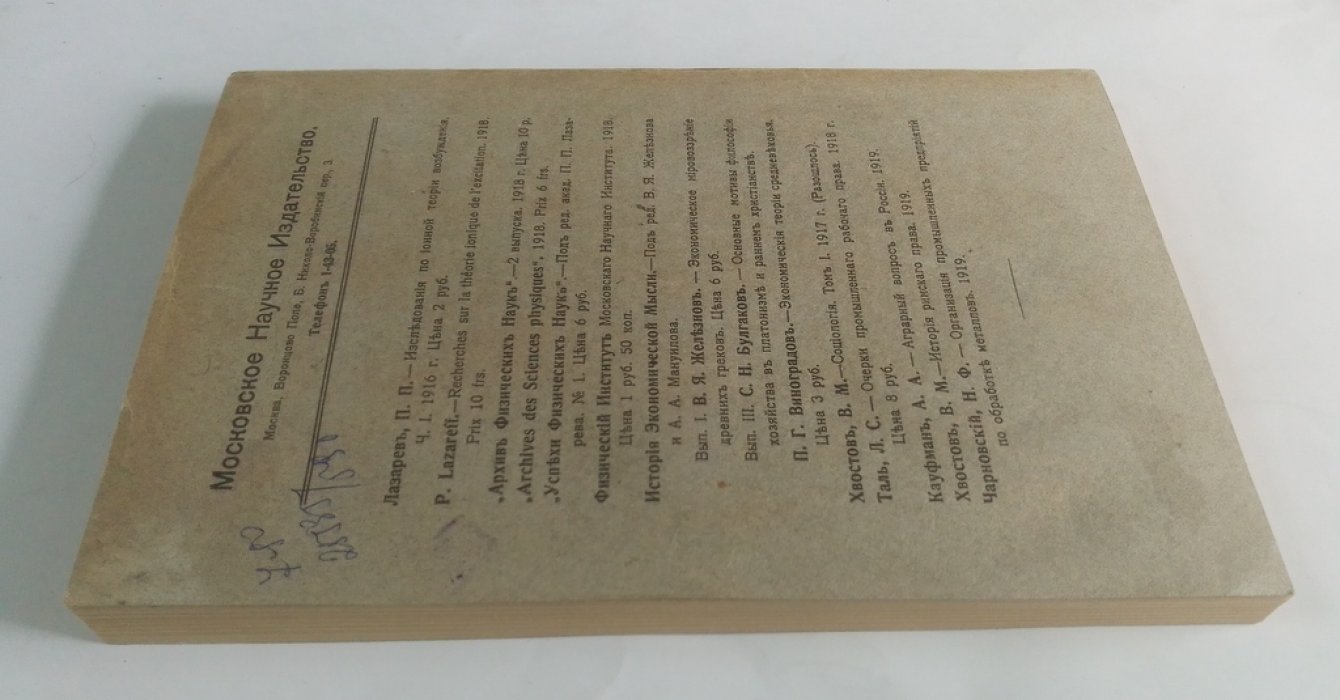 Московское Научное Издательство.
Москва, Воронцово Поле, Б. Николо-Воробинскій пер., 3.
Телефонъ 1-43-05.
Лазаревъ, П. П.—Изслѣдованія по іонной теоріи возбужденія.
Ч. I. 1916 г. Цѣна 2 руб.
P. Lazareff.—Recherches sur la théorie ionique de l'exciation. 1918.
Prix 10 frs.
„Архивъ Физическихъ Наукъ“—2 выпуска. 1918 г. Цѣна 10 р.
„Archives des Sciences physiques“. 1918. Prix 6 frs.
„Успѣхи Физическихъ Наукъ“—Подъ ред. акад. П. П. Лаза-
рева. № 1. Цѣна 6 руб.
Физическій Институтъ Московскаго Научнаго Института. 1918.
Цѣна 1 руб. 50 коп.
Исторія Экономической Мысли.—Подъ ред. В. Я. Желѣзнова
и А. А. Мануилова.
Вып. I. В. Я. Желѣзновъ. — Экономическое міровоззрѣніе
древнихъ грековъ. Цѣна 6 руб.
Вып. III. С. Н. Булгаковъ. — Основные мотивы философіи
хозяйства въ платонизмѣ и раннемъ христіанствѣ.
П. Г. Виноградовъ.—Экономическія теоріи средневѣковья.
Цѣна 3 руб.
Хвостовъ, В. М.—Соціологія. Томъ I. 1917 г. (Разошлось).
Таль, Л. С. — Очерки промышленнаго рабочаго права. 1918 г.
Цѣна 8 руб.
Кауфманъ, А. А. — Аграрный вопросъ въ Россіи. 1919.
Хвостовъ, В. М.—Исторія римскаго права. 1919.
Чарновскій, Н. Ф. — Организація промышленныхъ предпріятій
по обработкѣ металловъ. 1919.